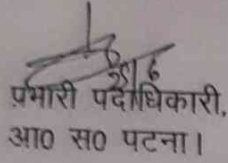 प्रभारी पदाधिकारी,
आ० स० पटना।